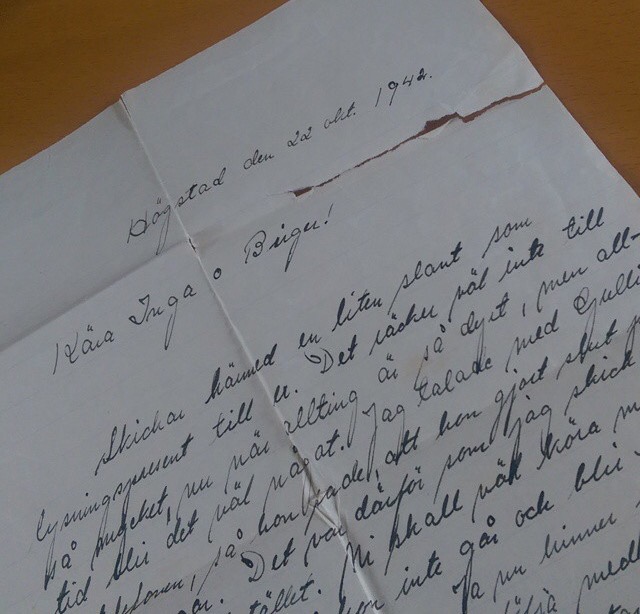 Högstad den 22 okt. 1942.
Kära Inga o Birger!
Skickar härmed en liten slant som
lysningspresent till er. Det räcker väl inte till
så mycket, nu när allting är så dyrt, men all-
tid blir det väl något. Jag talade med Gulli
telefonen, så hon sade, att hon gjort slut
Det var därför som jag skick
stället. Ni skall väl höra
inte går och blir
Ja nu hinner